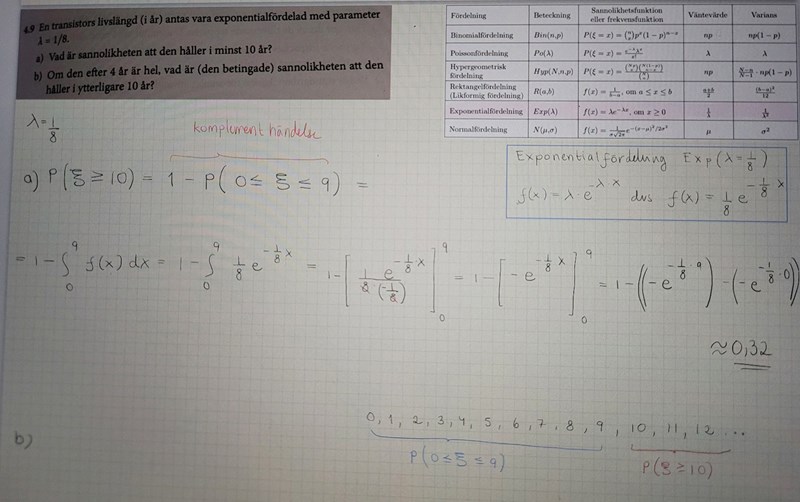 4.9 En transistors livslängd (i år) antas vara exponentialfördelad med parameter
λ = 1/8.
a) Vad är sannolikheten att den håller i minst 10 år?
b) Om den efter 4 år är hel, vad är (den betingade) sannolikheten att den
håller i ytterligare 10 år?
Fördelning Beteckning Sannolikhetsfunktion eller frekvensfunktion Väntevärde Varians
Binomialfördelning Bin(n,p) P(ξ = x) = (n x) p^x (1 − p)^{n−x} np np(1 − p)
Poissonfördelning Po(λ) P(ξ = x) = e^{−λ}λ^x / x! λ λ
Hypergeometrisk fördelning Hyp(N,n,p) P(ξ = x) = (Np x)(N(1−p) n−x) / (N n) np N−n/N−1 · np(1 − p)
Rektangelfördelning (Likformig fördelning) R(a,b) f(x) = 1/b−a, om a ≤ x ≤ b a+b/2 (b−a)²/12
Exponentialfördelning Exp(λ) f(x) = λe^{−λx}, om x ≥ 0 1/λ 1/λ²
Normalfördelning N(μ,σ) f(x) = 1/σ√2π e^{−(x−μ)²/2σ²} μ σ²
λ = 1/8
komplement händelse
a) P(ξ ≥ 10) = 1 − P(0 ≤ ξ ≤ 9) =
Exponentialfördelning Exp(λ = 1/8)
f(x) = λ e^{−λ·x} dvs f(x) = 1/8 e^{−1/8 x}
= 1 − ∫₀⁹ f(x) dx = 1 − ∫₀⁹ 1/8 e^{−1/8 x} = 1 − [1/8 e^{−1/8·x} / (−1/8)]₀⁹ = 1 − [−e^{−1/8 x}]₀⁹ = 1 − ((−e^{−1/8·9}) − (−e^{−1/8·0}))
≈ 0,32
0, 1, 2, 3, 4, 5, 6, 7, 8, 9, 10, 11, 12 ...
P(0 ≤ ξ ≤ 9) P(ξ ≥ 10)
b)